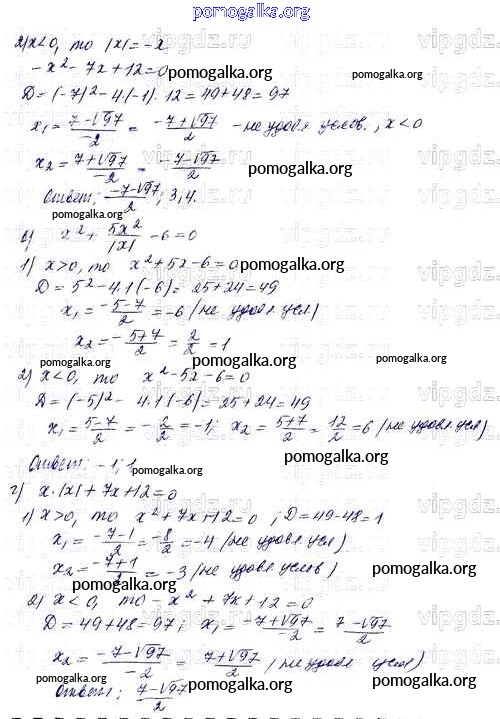 pomogalka.org
2) x<0, то |x|=-x
-x²-7x+12=0 pomogalka.org
D=(-7)²-4·(-1)·12=49+48=97
x₁=(7-√97)/-2=(-7+√97)/2 - не удовл услов., x<0
x₂=(7+√97)/-2=(-7-√97)/2 pomogalka.org
Ответ: (-7-√97)/2; 3; 4.
pomogalka.org
в) x²+5x²/|x|-6=0
1) x>0, то x²+5x-6=0 pomogalka.org
D=5²-4·1·(-6)=25+24=49
x₁=(-5-7)/2=-6 (не удовл усл)
x₂=(-5+7)/2=2/2=1
pomogalka.org pomogalka.org pomogalka.org
2) x<0, то x²-5x-6=0
D=(-5)²-4·1·(-6)=25+24=49
x₁=(5-7)/2=-2/2=-1; x₂=(5+7)/2=12/2=6 (не удовл усл)
pomogalka.org
Ответ: -1; 1
pomogalka.org
г) x·|x|+7x+12=0
1) x>0, то x²+7x+12=0; D=49-48=1
x₁=(-7-1)/2=-8/2=-4 (не удовл усл)
x₂=(-7+1)/2=-3 (не удовл услов)
pomogalka.org pomogalka.org
2) x<0, то -x²+7x+12=0
D=49+48=97; x₁=(-7+√97)/-2=(7-√97)/2
x₂=(-7-√97)/-2=(7+√97)/2 (не удовл усл)
pomogalka.org pomogalka.org
Ответ: (7-√97)/2